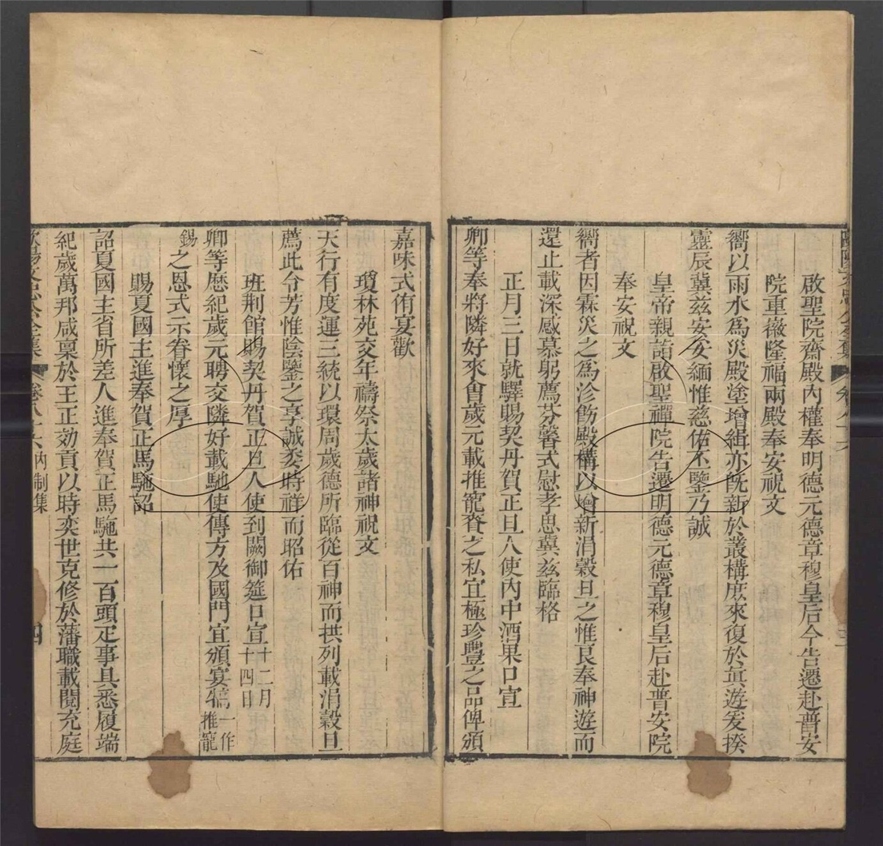 啟聖院齋殿內權奉明德元德章穆皇后今告遷赴普安
院重徽隆福兩殿奉安祝文
嚮以雨水爲災殿塗增緝亦旣新於叢構庶來復於真遊爰揆
靈辰冀茲安安緬惟慈佑丕鑒乃誠
皇帝親詣啟聖禪院告遷明德元德章穆皇后赴普安院
奉安祝文
嚮者因霖災之爲沴飭殿構以增新涓穀旦之惟良奉神遊而
還止載深感慕躬薦芬馨式慰孝思冀茲臨格
正月三日就驛賜契丹賀正旦人使內中酒果口宣
卿等奉將隣好來會歲元載推寵賚之私宜極珍豐之品俾頒
嘉味式侑宴歡
瓊林苑交年禱祭太歲諸神祝文
天行有度運三統以環周歲德所臨從百神而拱列載涓穀旦
薦此令芳惟陰鑒之享誠委時祥而昭佑
班荆館賜契丹賀正旦人使到闕御筵口宣十二月十四日
卿等歷紀歲元聘交隣好載馳使傳方及國門宜頒宴犒一作推寵
錫之恩式示眷懷之厚
賜夏國主進奉賀正馬駞詔
詔夏國主省所差人進奉賀正馬駞共一百頭疋事具悉履端
紀歲萬邦咸稟於王正効貢以時奕世克修於藩職載閱充庭
歐陽文忠公全集 卷八十六 內制集 四